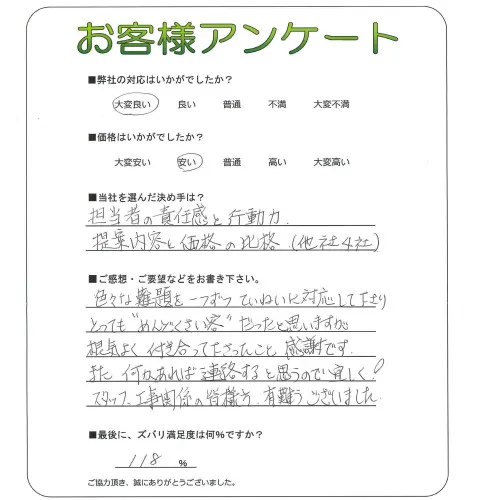 お客様アンケート
■弊社の対応はいかがでしたか？
大変良い 良い 普通 不満 大変不満
■価格はいかがでしたか？
大変安い 安い 普通 高い 大変高い
■当社を選んだ決め手は？
担当者の責任感と行動力.
提案内容と価格の比格 (他社4社)
■ご感想・ご要望などをお書き下さい。
色々な難題を一つずつ ていねいに対応して下さり
とっても"めんどくさい客"だったと思いますが
根気よく付き合って下さったこと 感謝です.
また 何かあれば連絡すると思うので宜しく!
スタッフ、工事関係の皆様方、有難うございました.
■最後に、ズバリ満足度は何%ですか？
118 %
ご協力頂き、誠にありがとうございました。